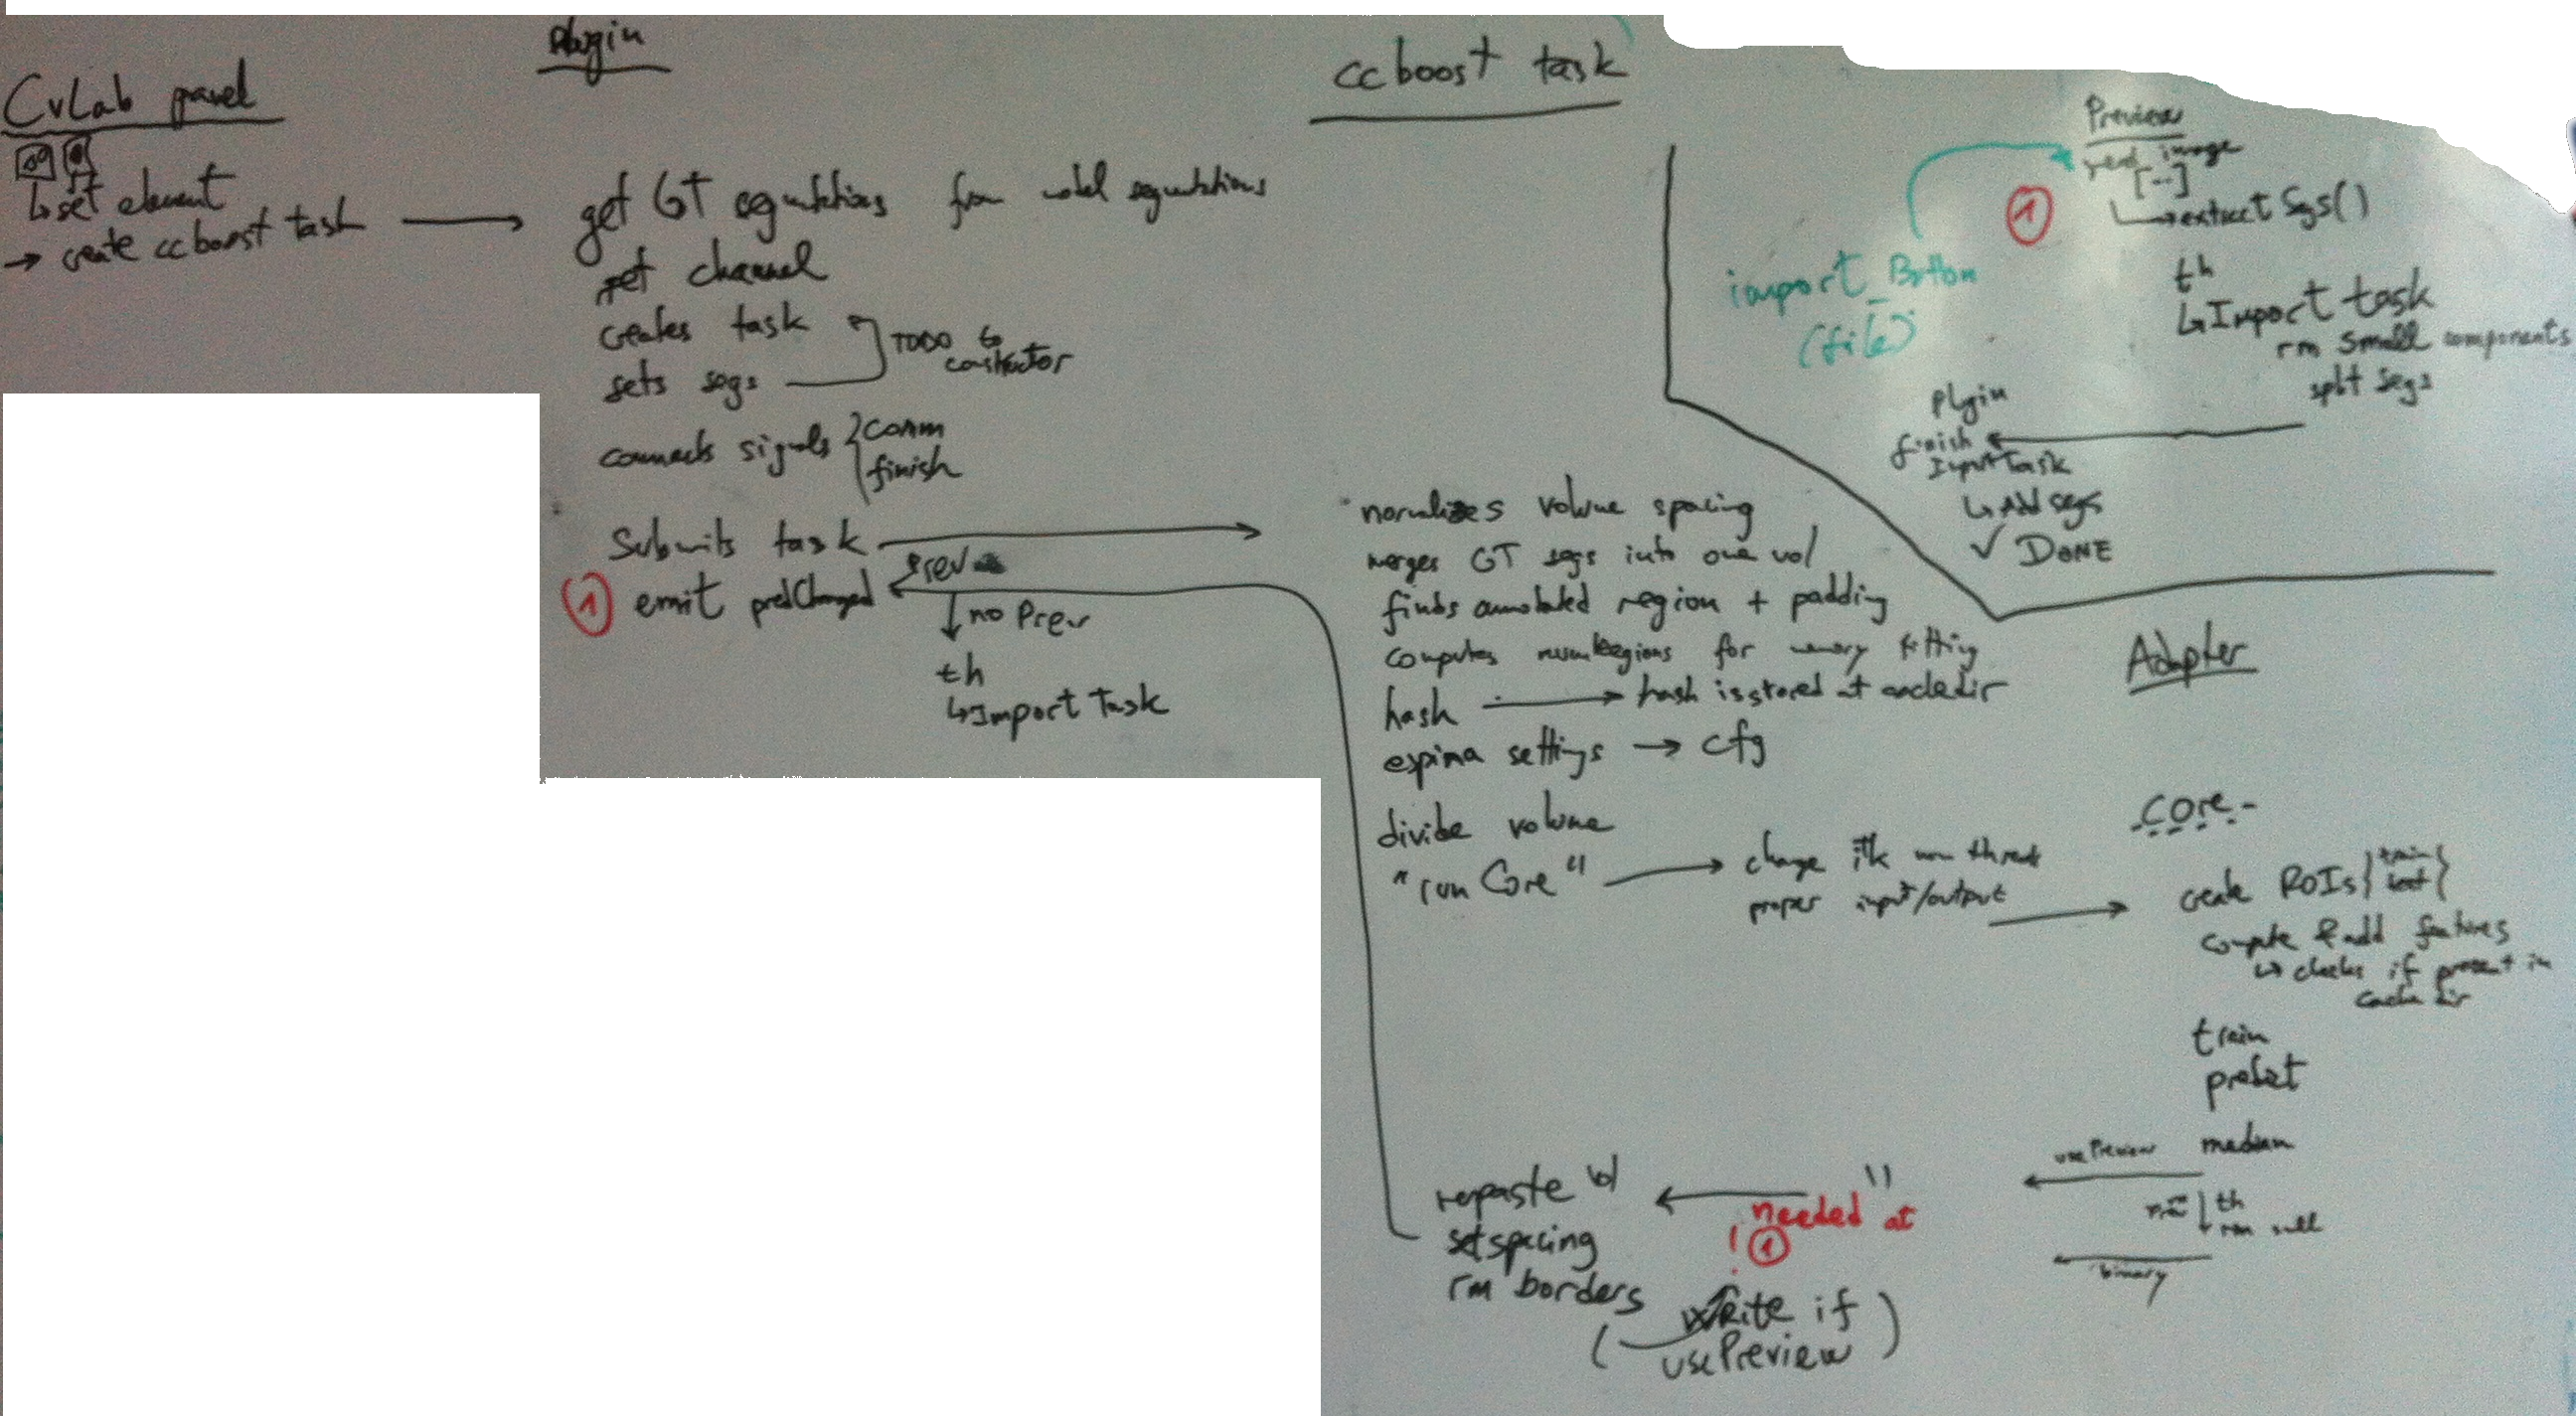 CvLab panel
↳ set element
→ create ccboost task
Plugin
get GT segmentations from model segmentations
get channel
creates task
sets segs
TODO to
constructor
connects signals
comm
finish
Submits task
Prev
① emit predChanged
no Prev
th
↳ Import Task
ccboost task
normalizes volume spacing
merges GT segs into one vol
finds annotated region + padding
computes numRegions for memory fitting
hash → hash is stored at cachedir
espina settings → cfg
divide volume
"run Core" → change itk num threads
proper input/output
repaste vol
set spacing
rm borders
needed at
! ①
(write if
usePreview)
import_Button
(file)
Preview
read image
[...]
① → extract Segs()
th
↳ Import task
rm small components
split segs
Plugin
finish
InputTask
↳ Add segs
✓ DONE
Adapter
Core
create ROIs } train
test }
compute & add features
↳ checks if present in
cache dir
train
predict
median
usePreview
th
rm small
binary